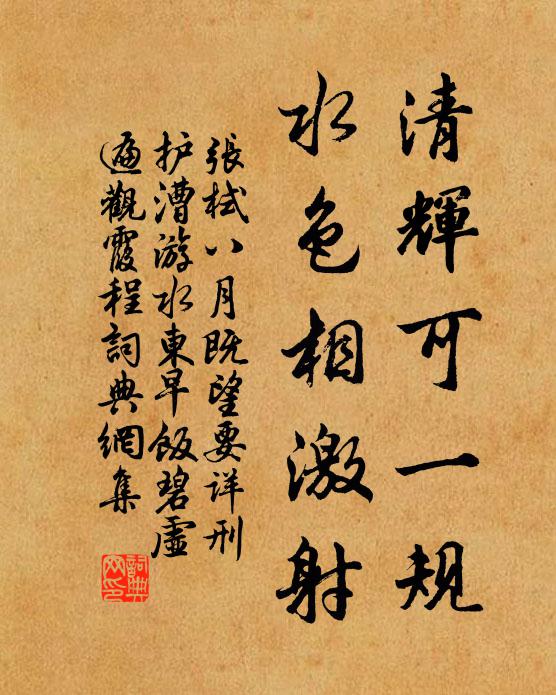 清輝可一規
水色相激射
張栻八月既望要详刑
护漕游水東早飯碧虛
遍觀霞程詞典網集
詞典網印